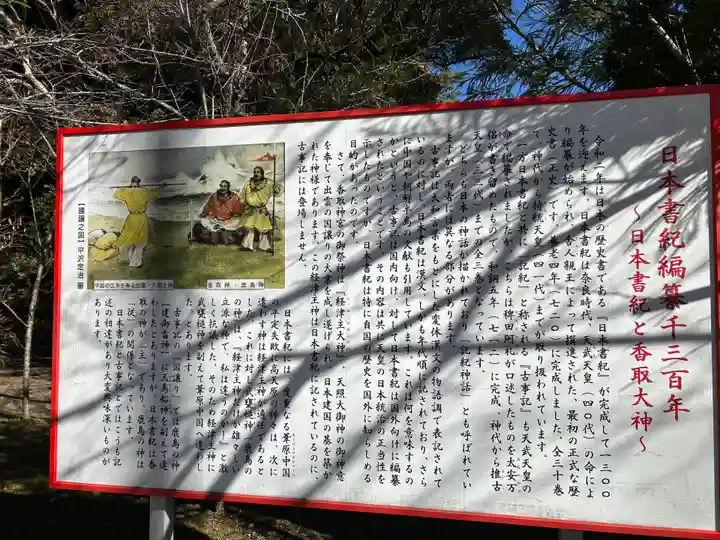 日本書紀編纂千三百年
～日本書紀と香取大神～
令和二年は日本の歴史書である『日本書紀』が完成して一三〇〇
年を迎えます。日本書紀は奈良時代、天武天皇（四〇代）の命によ
り編纂が始められ、舎人親王によって撰進された、最初の正式な歴
史書（正史）です。養老四年（七二〇）に完成しました。全三十巻
で、神代から持統天皇（四一代）までが取り扱われています。
一方日本書紀と共に「記紀」と称される『古事記』も天武天皇の
命で編纂されましたが、こちらは稗田阿礼が口述したものを太安万
侶が書き留めたもので、和銅五年（七一二）に完成、神代から推古
天皇（三三代）までの全三巻となっています。
どちらも日本の神話が描かれており「記紀神話」とも呼ばれてい
ますが、両者には異なる部分があります。
古事記は伝承をもとに、変体漢文の物語調で表記されて
いるのに対し、日本書紀は漢文、しかも年代順に記されており、さら
に中国や朝鮮半島の文献も引用しています。これは何を意味するの
かというと、古事記は国内向け、対して日本書紀は国外向けに編纂
されたということです。その内容は共に天皇の日本統治の正当性を
示したものですが、日本書紀は特に自国の歴史を国外に知らしめる
目的があったのです。
さて、香取神宮の御祭神は『経津主大神』、天照大御神の御神意
を奉じて出雲の国譲りの大業を成し遂げられ、日本建国の基を築か
れた神様であります。この経津主神は日本書紀に記されているのに、
古事記には登場しません。
日本書紀では、度重なる葦原中国
の平定失敗に高天原の神々は、次に
遣わす神は経津主神が適任であると
した。これに対し武甕槌神（鹿島の
神）は、「経津主神だけが雄々しく
立派な神で、私は違うのか」と激
しく抗議した。そのため経津主神に
武甕槌神を副えて葦原中国へ遣わし
た、とあります。
古事記の「国譲り」では鹿島の神
「建御雷神」に天鳥船神を副えて遣
わしたとありますが、日本書紀は香
取の神が「主」、鹿島の神は
「従」の関係となっています。
日本書紀と古事記とではこうも記
述の相違があり大変興味深いものが
あります。
香取神・鹿島神
【国譲之図】平沢定治 筆